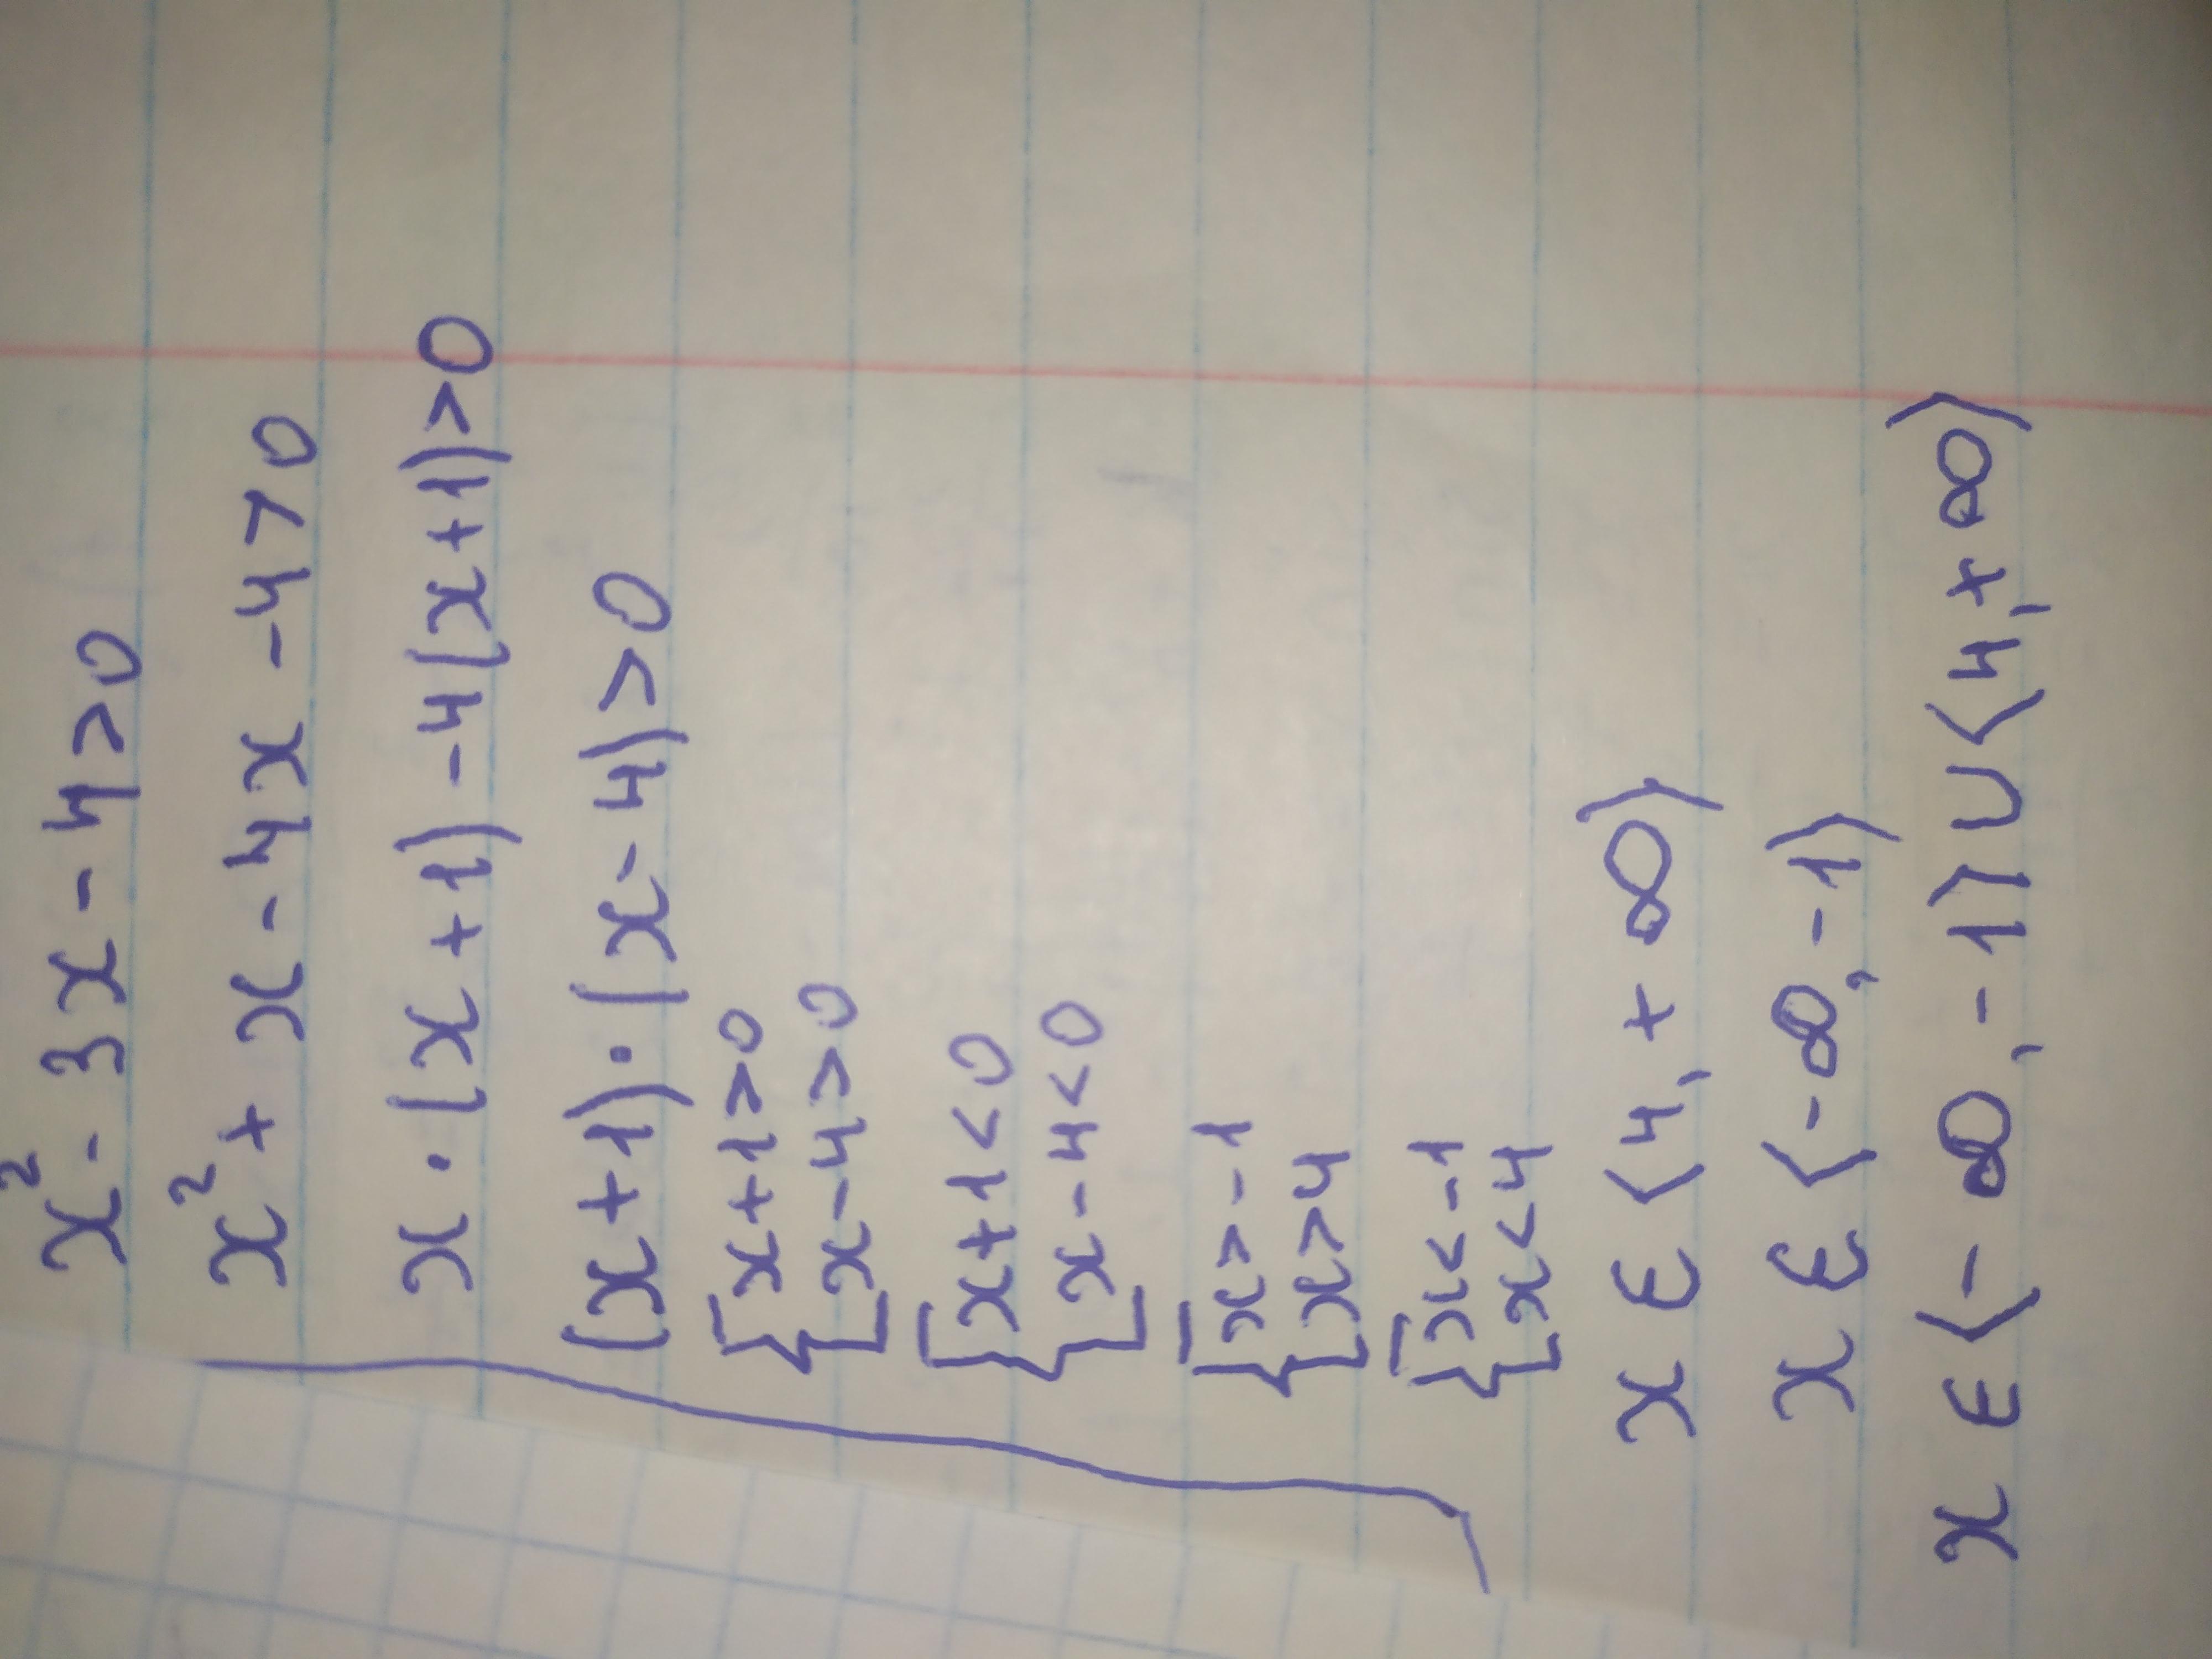 x² - 3x - 4 > 0
x² + x - 4x - 4 > 0
x · (x + 1) - 4(x + 1) > 0
(x + 1) · (x - 4) > 0
{ x + 1 > 0
x - 4 > 0
{ x + 1 < 0
x - 4 < 0
{ x > -1
x > 4
{ x < -1
x < 4
x ∈ ⟨4, +∞⟩
x ∈ ⟨-∞, -1⟩
x ∈ ⟨-∞, -1⟩ ∪ ⟨4, +∞⟩